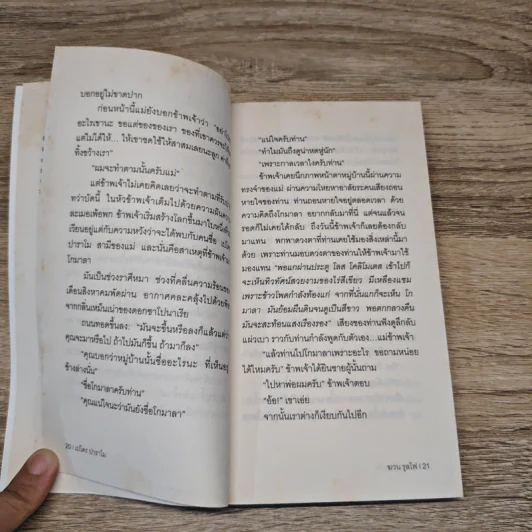 บอกอยู่ไม่ขาดปาก
ก่อนหน้านี้แม่ยังบอกข้าพเจ้าว่า "อย่าไป
อะไรเขานะ ขอแต่ของของเรา ของที่เขาควร
แต่ไม่ได้ให้... ให้เขาชดใช้ให้สาสมเลยนะลูก
ทิ้งขว้างเรา"
"ผมจะทำตามนั้นครับแม่"
แต่ข้าพเจ้าไม่เคยคิดเลยว่าจะทำตามที่
ทว่าบัดนี้ ในหัวข้าพเจ้าเต็มไปด้วยความฝัน
ละเมอเพ้อพก ข้าพเจ้าเริ่มสร้างโลกขึ้นมาใบหนึ่ง
เวียนอยู่แต่กับความหวังว่าจะได้พบกับคนชื่อ เปโดร
ปาราโม สามีของแม่ และนั่นคือสาเหตุที่ข้าพเจ้า
โกมาลา
มันเป็นช่วงราศีหมา ช่วงที่คลื่นความร้อน
เดือนสิงหาคมพัดผ่าน อากาศคละคลุ้งไปด้วย
จากกลิ่นเหม็นเน่าของดอกซาโปนาเรีย
ถนนทอดขึ้นลง: "มันจะขึ้นหรือลงก็แล้วแต่ว่า
คุณจะมาหรือไป ถ้าไปมันก็ขึ้น ถ้ามาก็ลง"
"คุณบอกว่าหมู่บ้านนั้นชื่ออะไรนะ ที่เห็นอยู่
ข้างล่างนั่น"
"ชื่อโกมาลาครับท่าน"
"คุณแน่ใจนะว่ามันยังชื่อโกมาลา"
20 | เปโดร ปาราโม
"แน่ใจครับท่าน"
"ทำไมมันถึงดูน่าหดหู่นัก"
"เพราะกาลเวลาไงครับท่าน"
ข้าพเจ้าเคยนึกภาพหน้าตาหมู่บ้านนี้ผ่านความ
ทรงจำของแม่ ผ่านความโหยหาอาลัยระคนเสียงถอน
หายใจของท่าน ท่านถอนหายใจอยู่ตลอดเวลา ด้วย
ความคิดถึงโกมาลา อยากกลับมาที่นี่ แต่จนแล้วจน
รอดก็ไม่เคยได้กลับ ถึงวันนี้ข้าพเจ้าก็เลยต้องกลับ
มาแทน พกพาดวงตาที่ท่านเคยใช้มองสิ่งเหล่านี้มา
ด้วย เพราะท่านมอบดวงตาของท่านให้ข้าพเจ้ามาใช้
มองแทน "พอแกผ่านประตู โลส โคลิโมเตส เข้าไปก็
จะเห็นทิวทัศน์สวยงามของไร่สีเขียว มีเหลืองแซม
เพราะข้าวโพดกำลังท้องแก่ จากที่นั่นแกก็จะเห็น โก
มาลา มันย้อมผืนดินจนดูเป็นสีขาว พอตกกลางคืน
มันจะสะท้อนแสงเรืองรอง" เสียงของท่านฟังดูลึกลับ
แผ่วเบา ราวกับท่านกำลังพูดกับตัวเอง...แม่ข้าพเจ้า
"แล้วท่านไปโกมาลาเพราะอะไร ขอถามหน่อย
ได้ไหมครับ" ข้าพเจ้าได้ยินชายผู้นั้นถาม
"ไปหาพ่อผมครับ" ข้าพเจ้าตอบ
"อ้อ!" เขาเอ่ย
จากนั้นเราต่างก็เงียบกันไปอีก
ฆวน รุลโฟ | 21